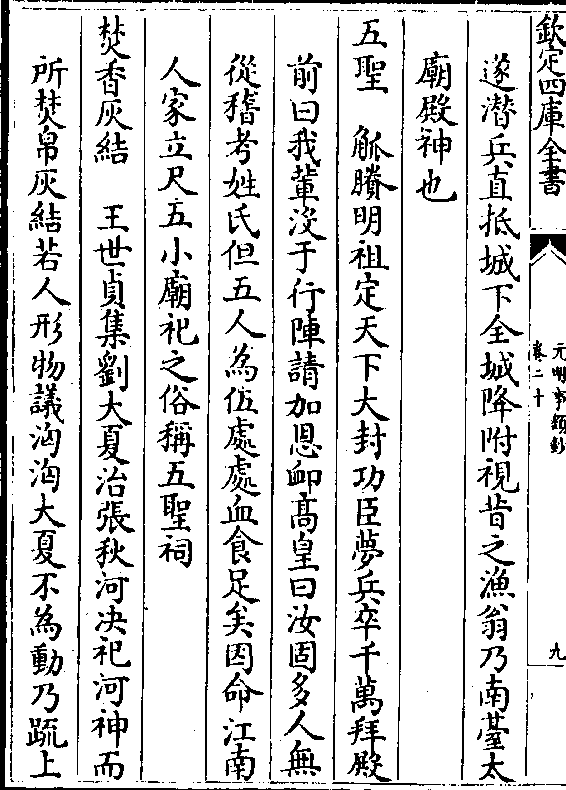 欽定四庫全書
元明事類鈔
卷二十
九
遂潛兵直抵城下全城降附視昔之漁翁乃南臺太
廟殿神也
五聖　觚賸明祖定天下大封功臣夢兵卒千萬拜殿
前曰我輩沒于行陣請加恩卹高皇曰汝固多人無
從稽考姓氏但五人為伍處處血食足矣因命江南
人家立尺五小廟祀之俗稱五聖祠
焚香灰結　王世貞集劉大夏治張秋河决祀河神而
所焚帛灰結若人形物議洶洶大夏不為動乃疏上